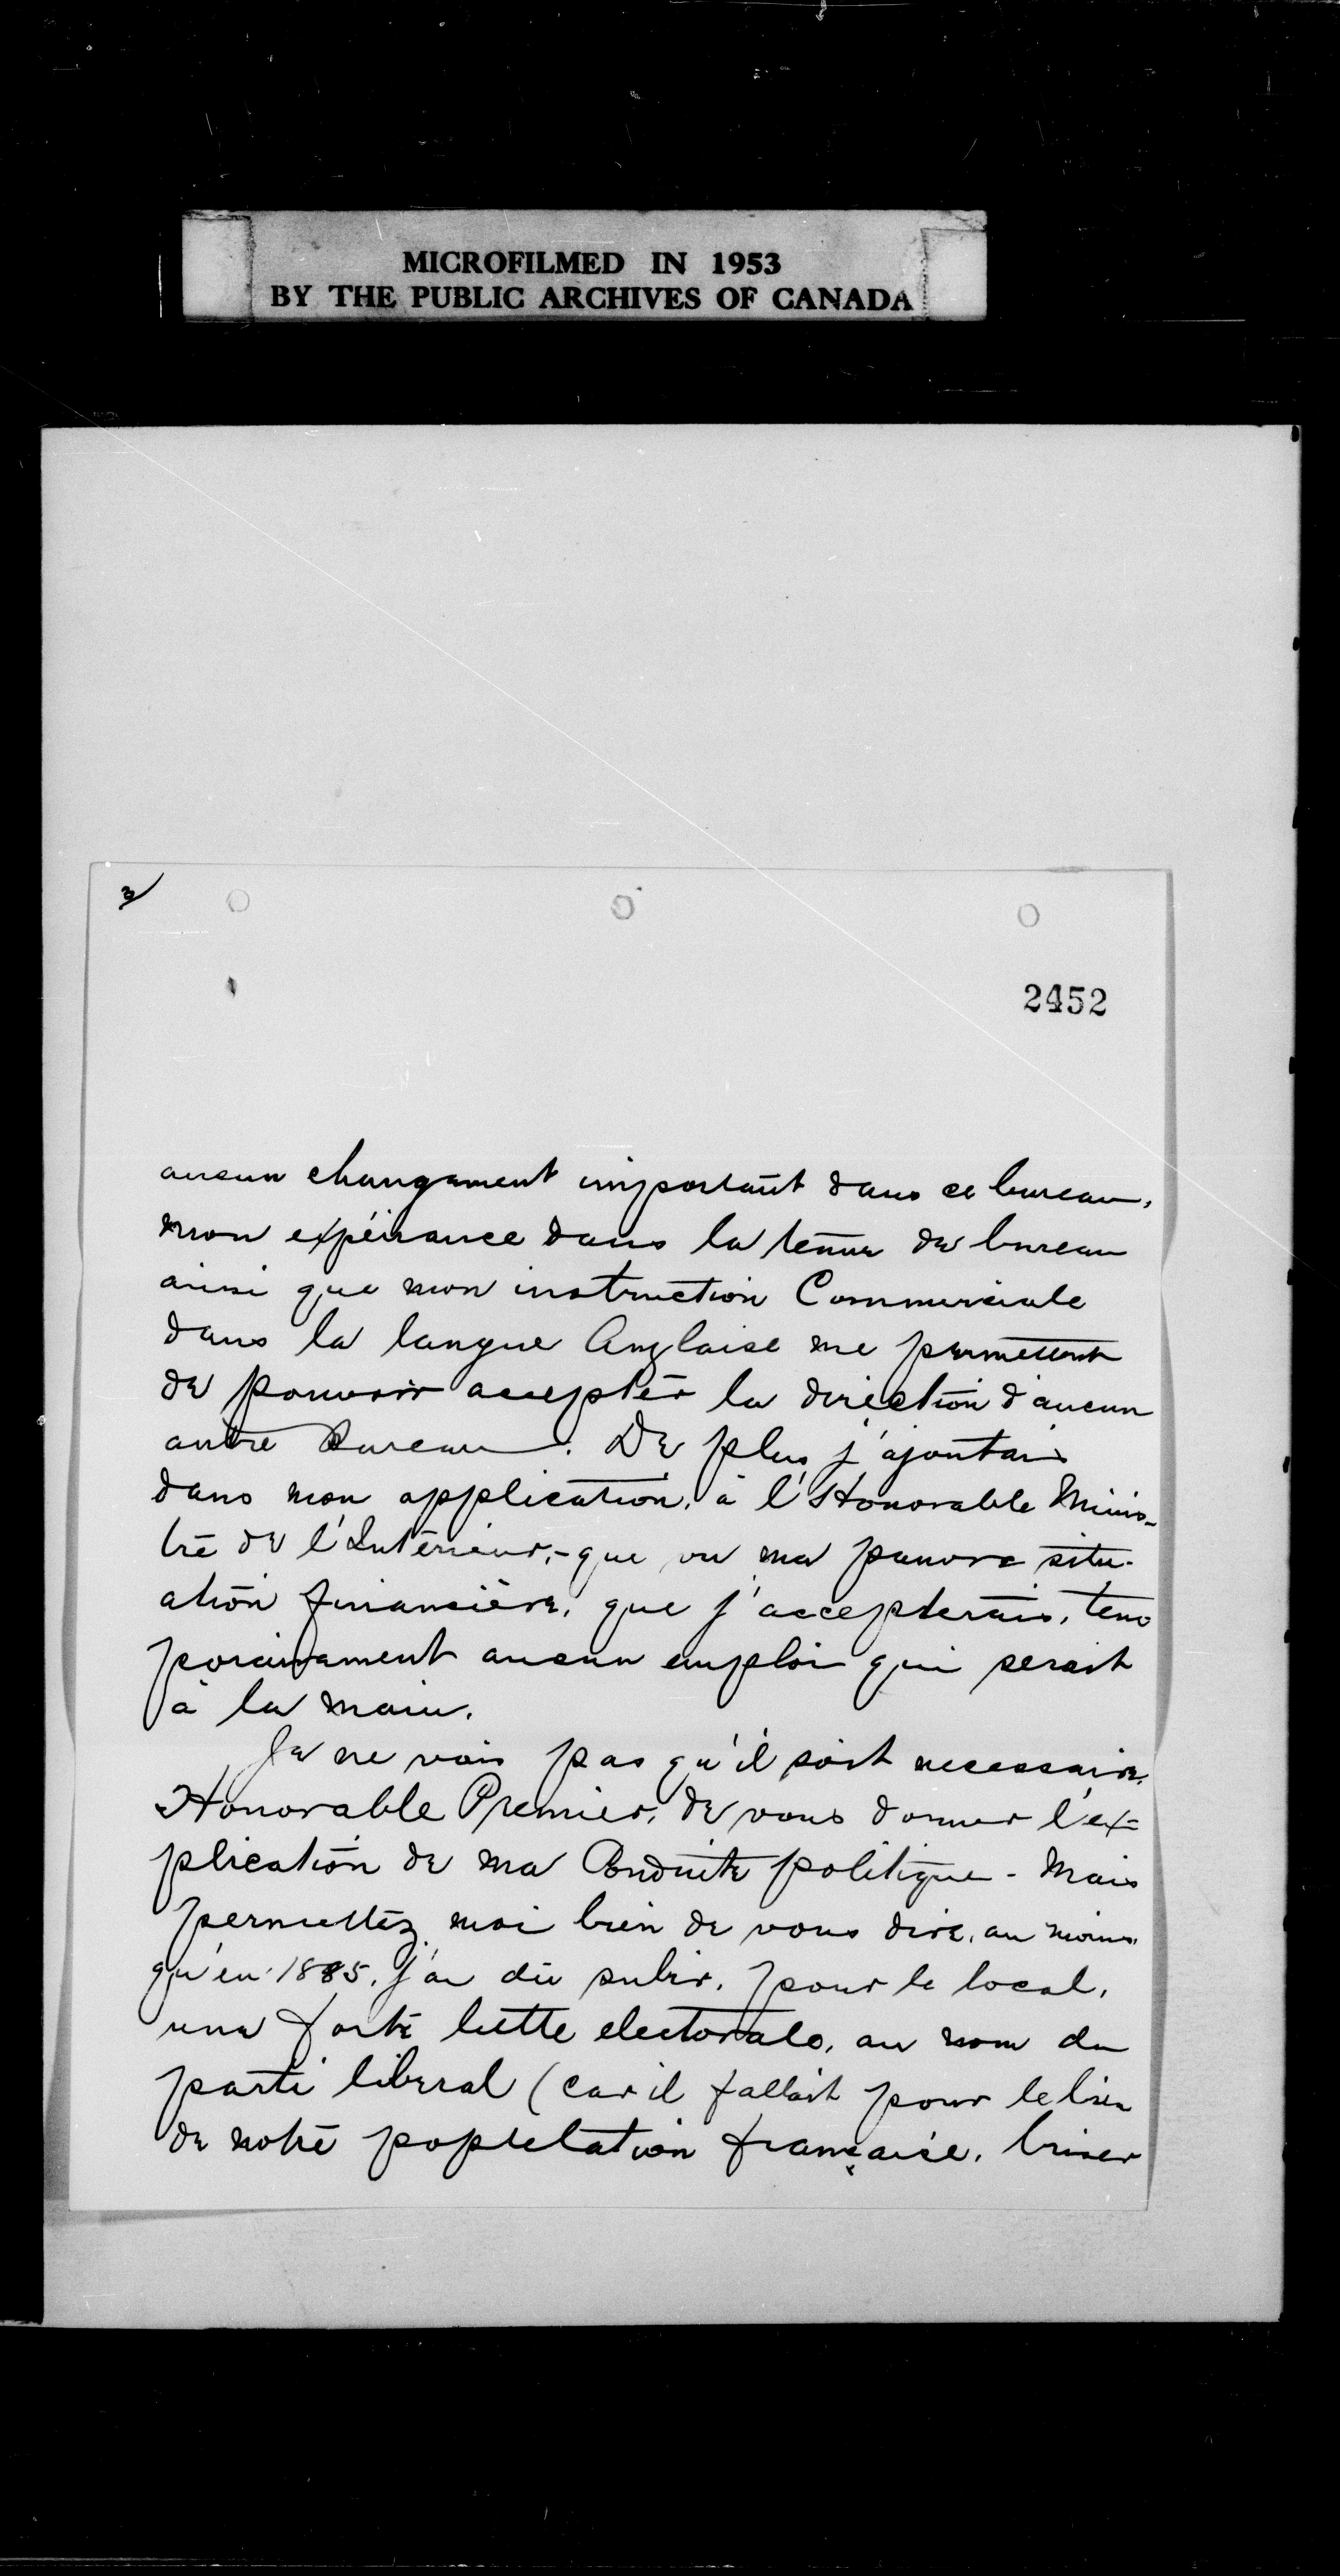 MICROFILMED IN 1953
BY THE PUBLIC ARCHIVES OF CANADA
3/
2452
aucun changement important dans ce bureau,
mon expérience dans la tenue de bureau
ainsi que mon instruction Commerciale
dans la langue Anglaise me permettent
de pouvoir accepter la direction d'aucun
autre Bureau. De plus j'ajoutais
dans mon application, à l'Honorable Minis-
tre de l'Intérieur,- que vu ma pauvre situ-
ation financière, que j'accepterais, tem
porairament aucun emploi qui serait
à la main.
Je ne vois pas qu'il soit necessaire,
Honorable Premier, de vous donner l'ex=
plication de ma Conduite politique - Mais
permettez moi bien de vous dire, au moins
qu'en 1885, j'ai dû subir, pour le local,
une forte lutte electorale, au nom du
parti liberal (car il fallait pour le bien
de notre popielation française, briser